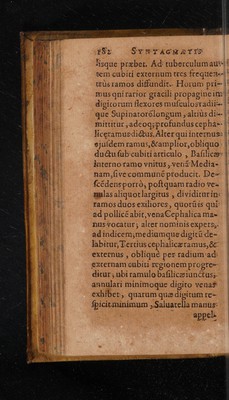 182 SYNTAGMATIS
lisque præbet. Ad tuberculum au-
tem cubiti externum tres frequen-
tiùs ramos diffundit. Horum pri-
mus qui ratior gracili propagine in
digitorum flexores musculos radii-
que Supinatorê longum, altiùs di-
mittitur, adeoq; profundus cepha-
licę ramus dictus. Alter qui internus
ejusdem ramus, & amplior, obliquo
ductu sub cubiti articulo, Basilicæ
interno ramo vnitus, venâ Media-
nam, sive communē producit. De-
scēdens porrò, postquam radio ve-
nulas aliquot largitus, dividitur in
ramos duos exiliores, quorū is qui
ad pollicē abit, vena Cephalica ma-
nus vocatur, alter nominis expers,
ad indicem, mediumque digitū de-
labitur. Tertius cephalicæ ramus, &
externus, obliquè per radium ad
externam cubiti regionem progre-
ditur, ubi ramulo basilicæ iunctus,
annulari minimoque digito venas
exhibet, quarum quæ digitum re-
spicit minimum, Salvatella manus
appel-